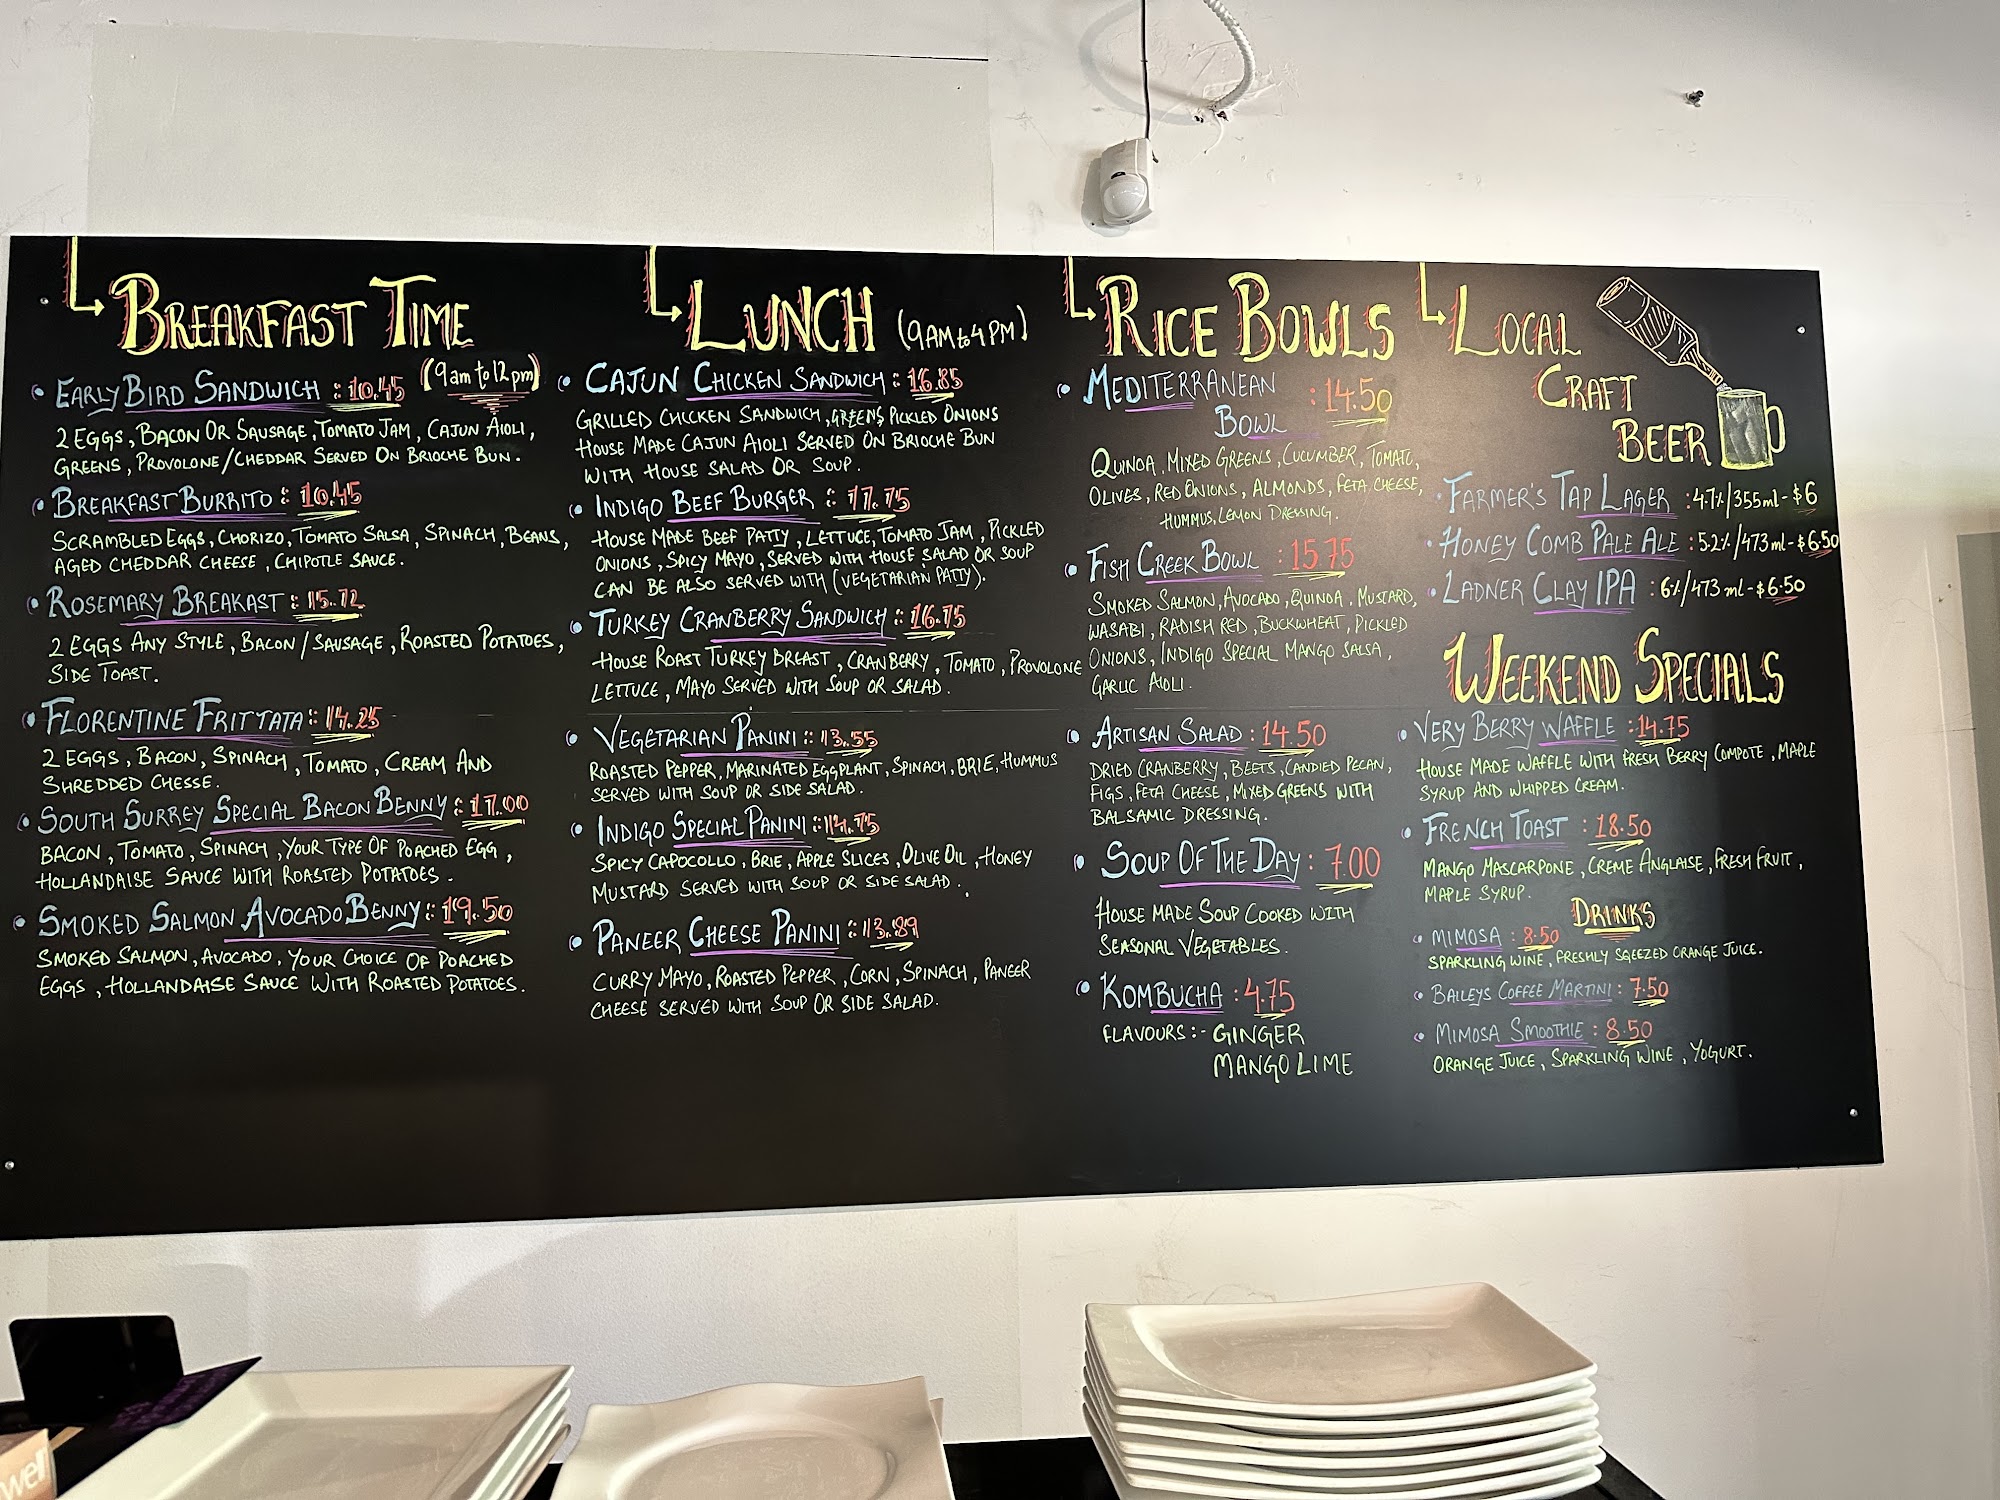 BREAKFAST TIME
(9am to 12pm)
EARLY BIRD SANDWICH :: 10.45
2 EGGS, BACON OR SAUSAGE, TOMATO JAM, CAJUN AIOLI,
GREENS, PROVOLONE/CHEDDAR SERVED ON BRIOCHE BUN.
BREAKFAST BURRITO :: 10.45
SCRAMBLED EGGS, CHORIZO, TOMATO SALSA, SPINACH, BEANS,
AGED CHEDDAR CHEESE, CHIPOTLE SAUCE.
ROSEMARY BREAKAST :: 15.72
2 EGGS ANY STYLE, BACON/SAUSAGE, ROASTED POTATOES,
SIDE TOAST.
FLORENTINE FRITTATA :: 14.25
2 EGGS, BACON, SPINACH, TOMATO, CREAM AND
SHREDDED CHESSE.
SOUTH SURREY SPECIAL BACON BENNY :: 17.00
BACON, TOMATO, SPINACH, YOUR TYPE OF POACHED EGG,
HOLLANDAISE SAUCE WITH ROASTED POTATOES.
SMOKED SALMON AVOCADO BENNY :: 19.50
SMOKED SALMON, AVOCADO, YOUR CHOICE OF POACHED
EGGS, HOLLANDAISE SAUCE WITH ROASTED POTATOES.
LUNCH (9AM to 4PM)
CAJUN CHICKEN SANDWICH :: 16.85
GRILLED CHICKEN SANDWICH, GREENS, PICKLED ONIONS
HOUSE MADE CAJUN AIOLI SERVED ON BRIOCHE BUN
WITH HOUSE SALAD OR SOUP.
INDIGO BEEF BURGER :: 17.75
HOUSE MADE BEEF PATTY, LETTUCE, TOMATO JAM, PICKLED
ONIONS, SPICY MAYO, SERVED WITH HOUSE SALAD OR SOUP
CAN BE ALSO SERVED WITH (VEGETARIAN PATTY).
TURKEY CRANBERRY SANDWICH :: 16.75
HOUSE ROAST TURKEY BREAST, CRANBERRY, TOMATO, PROVOLONE
LETTUCE, MAYO SERVED WITH SOUP OR SALAD.
VEGETARIAN PANINI :: 13.55
ROASTED PEPPER, MARINATED EGGPLANT, SPINACH, BRIE, HUMMUS
SERVED WITH SOUP OR SIDE SALAD.
INDIGO SPECIAL PANINI :: 14.75
SPICY CAPOCOLLO, BRIE, APPLE SLICES, OLIVE OIL, HONEY
MUSTARD SERVED WITH SOUP OR SIDE SALAD.
PANEER CHEESE PANINI :: 13.89
CURRY MAYO, ROASTED PEPPER, CORN, SPINACH, PANEER
CHEESE SERVED WITH SOUP OR SIDE SALAD.
RICE BOWLS
MEDITERRANEAN
BOWL : 14.50
QUINOA, MIXED GREENS, CUCUMBER, TOMATO,
OLIVES, RED ONIONS, ALMONDS, FETA CHEESE,
HUMMUS, LEMON DRESSING.
FISH CREEK BOWL : 15.75
SMOKED SALMON, AVOCADO, QUINOA, MUSTARD,
WASABI, RADISH RED, BUCKWHEAT, PICKLED
ONIONS, INDIGO SPECIAL MANGO SALSA,
GARLIC AIOLI.
ARTISAN SALAD : 14.50
DRIED CRANBERRY, BEETS, CANDIED PECAN,
FIGS, FETA CHEESE, MIXED GREENS WITH
BALSAMIC DRESSING.
SOUP OF THE DAY : 7.00
HOUSE MADE SOUP COOKED WITH
SEASONAL VEGETABLES.
KOMBUCHA : 4.75
FLAVOURS :- GINGER
MANGO LIME
LOCAL
CRAFT
BEER
FARMER'S TAP LAGER : 4.7%/355ml - $6
HONEY COMB PALE ALE : 5.2%/473ml - $6.50
LADNER CLAY IPA : 6%/473ml - $6.50
WEEKEND SPECIALS
VERY BERRY WAFFLE : 14.75
HOUSE MADE WAFFLE WITH FRESH BERRY COMPOTE, MAPLE
SYRUP AND WHIPPED CREAM.
FRENCH TOAST : 18.50
MANGO MASCARPONE, CREME ANGLAISE, FRESH FRUIT,
MAPLE SYRUP.
DRINKS
MIMOSA : 8.50
SPARKLING WINE, FRESHLY SQEEZED ORANGE JUICE.
BAILEYS COFFEE MARTINI : 7.50
MIMOSA SMOOTHIE : 8.50
ORANGE JUICE, SPARKLING WINE, YOGURT.
well